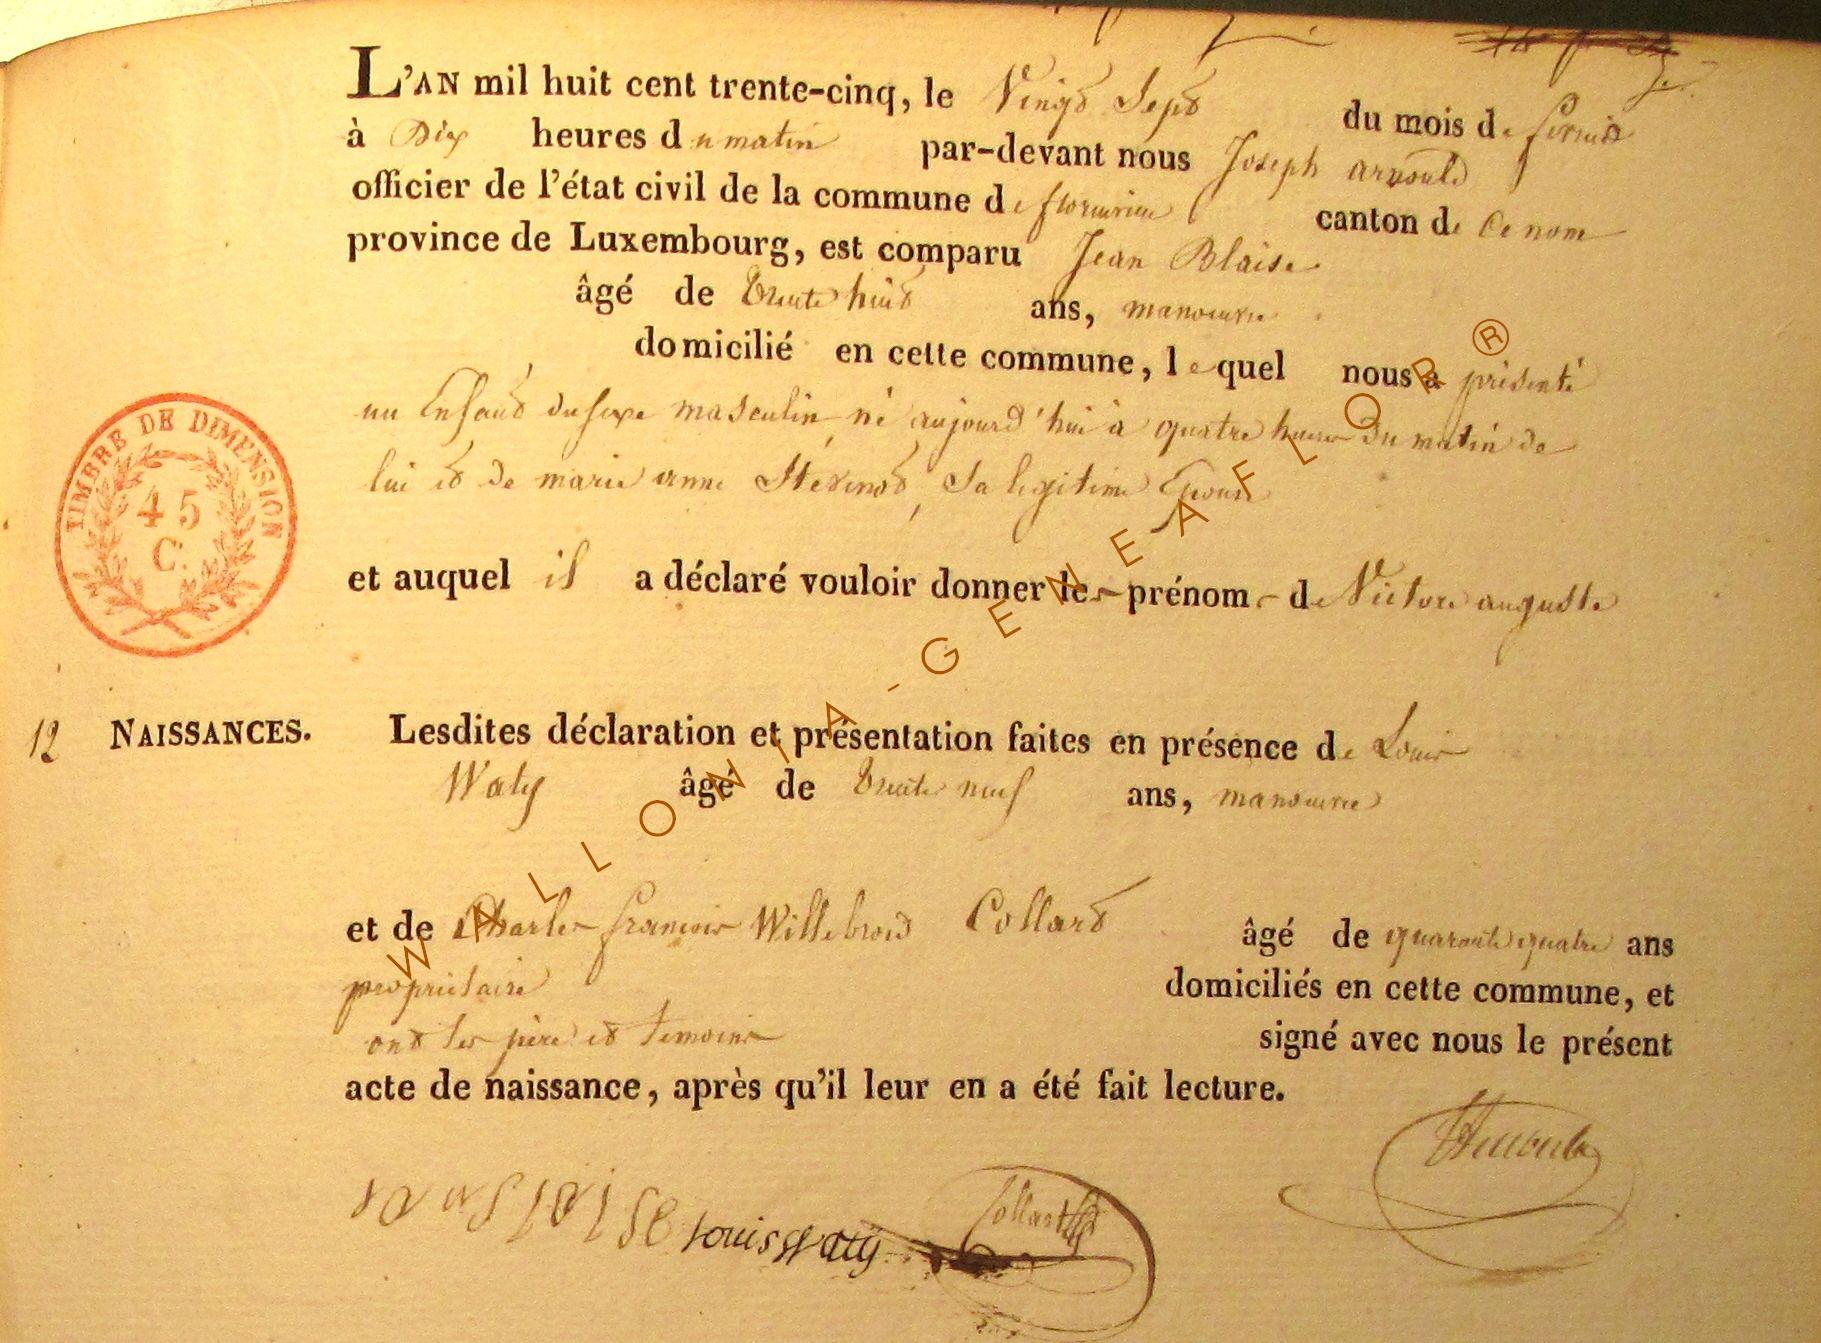 L'AN mil huit cent trente-cinq, le Vingt Sept du mois de fevrier
à Dix heures du matin par-devant nous Joseph arnould
officier de l'état civil de la commune de florenville canton de ce nom
province de Luxembourg, est comparu Jean Blaise
âgé de trente huit ans, manoeuvre
domicilié en cette commune, lequel nous a présenté
un Enfant du sexe masculin né aujourd'hui à quatre heures du matin de
lui et de marie anne Stevenot, Sa legitime Epouse
et auquel il a déclaré vouloir donner les prénoms de Victore auguste
TIMBRE DE DIMENSION
45
C.
12 NAISSANCES.
Lesdites déclaration et présentation faites en présence de Louis
Waty âgé de trente neuf ans, manoeuvre
et de Charles françois Willebrord Collard âgé de quarante quatre ans
propriétaire domiciliés en cette commune, et
ont les père et temoins signé avec nous le présent
acte de naissance, après qu'il leur en a été fait lecture.
louis Waty Collard Arnould
WALLONIA-GENEAFLOR®